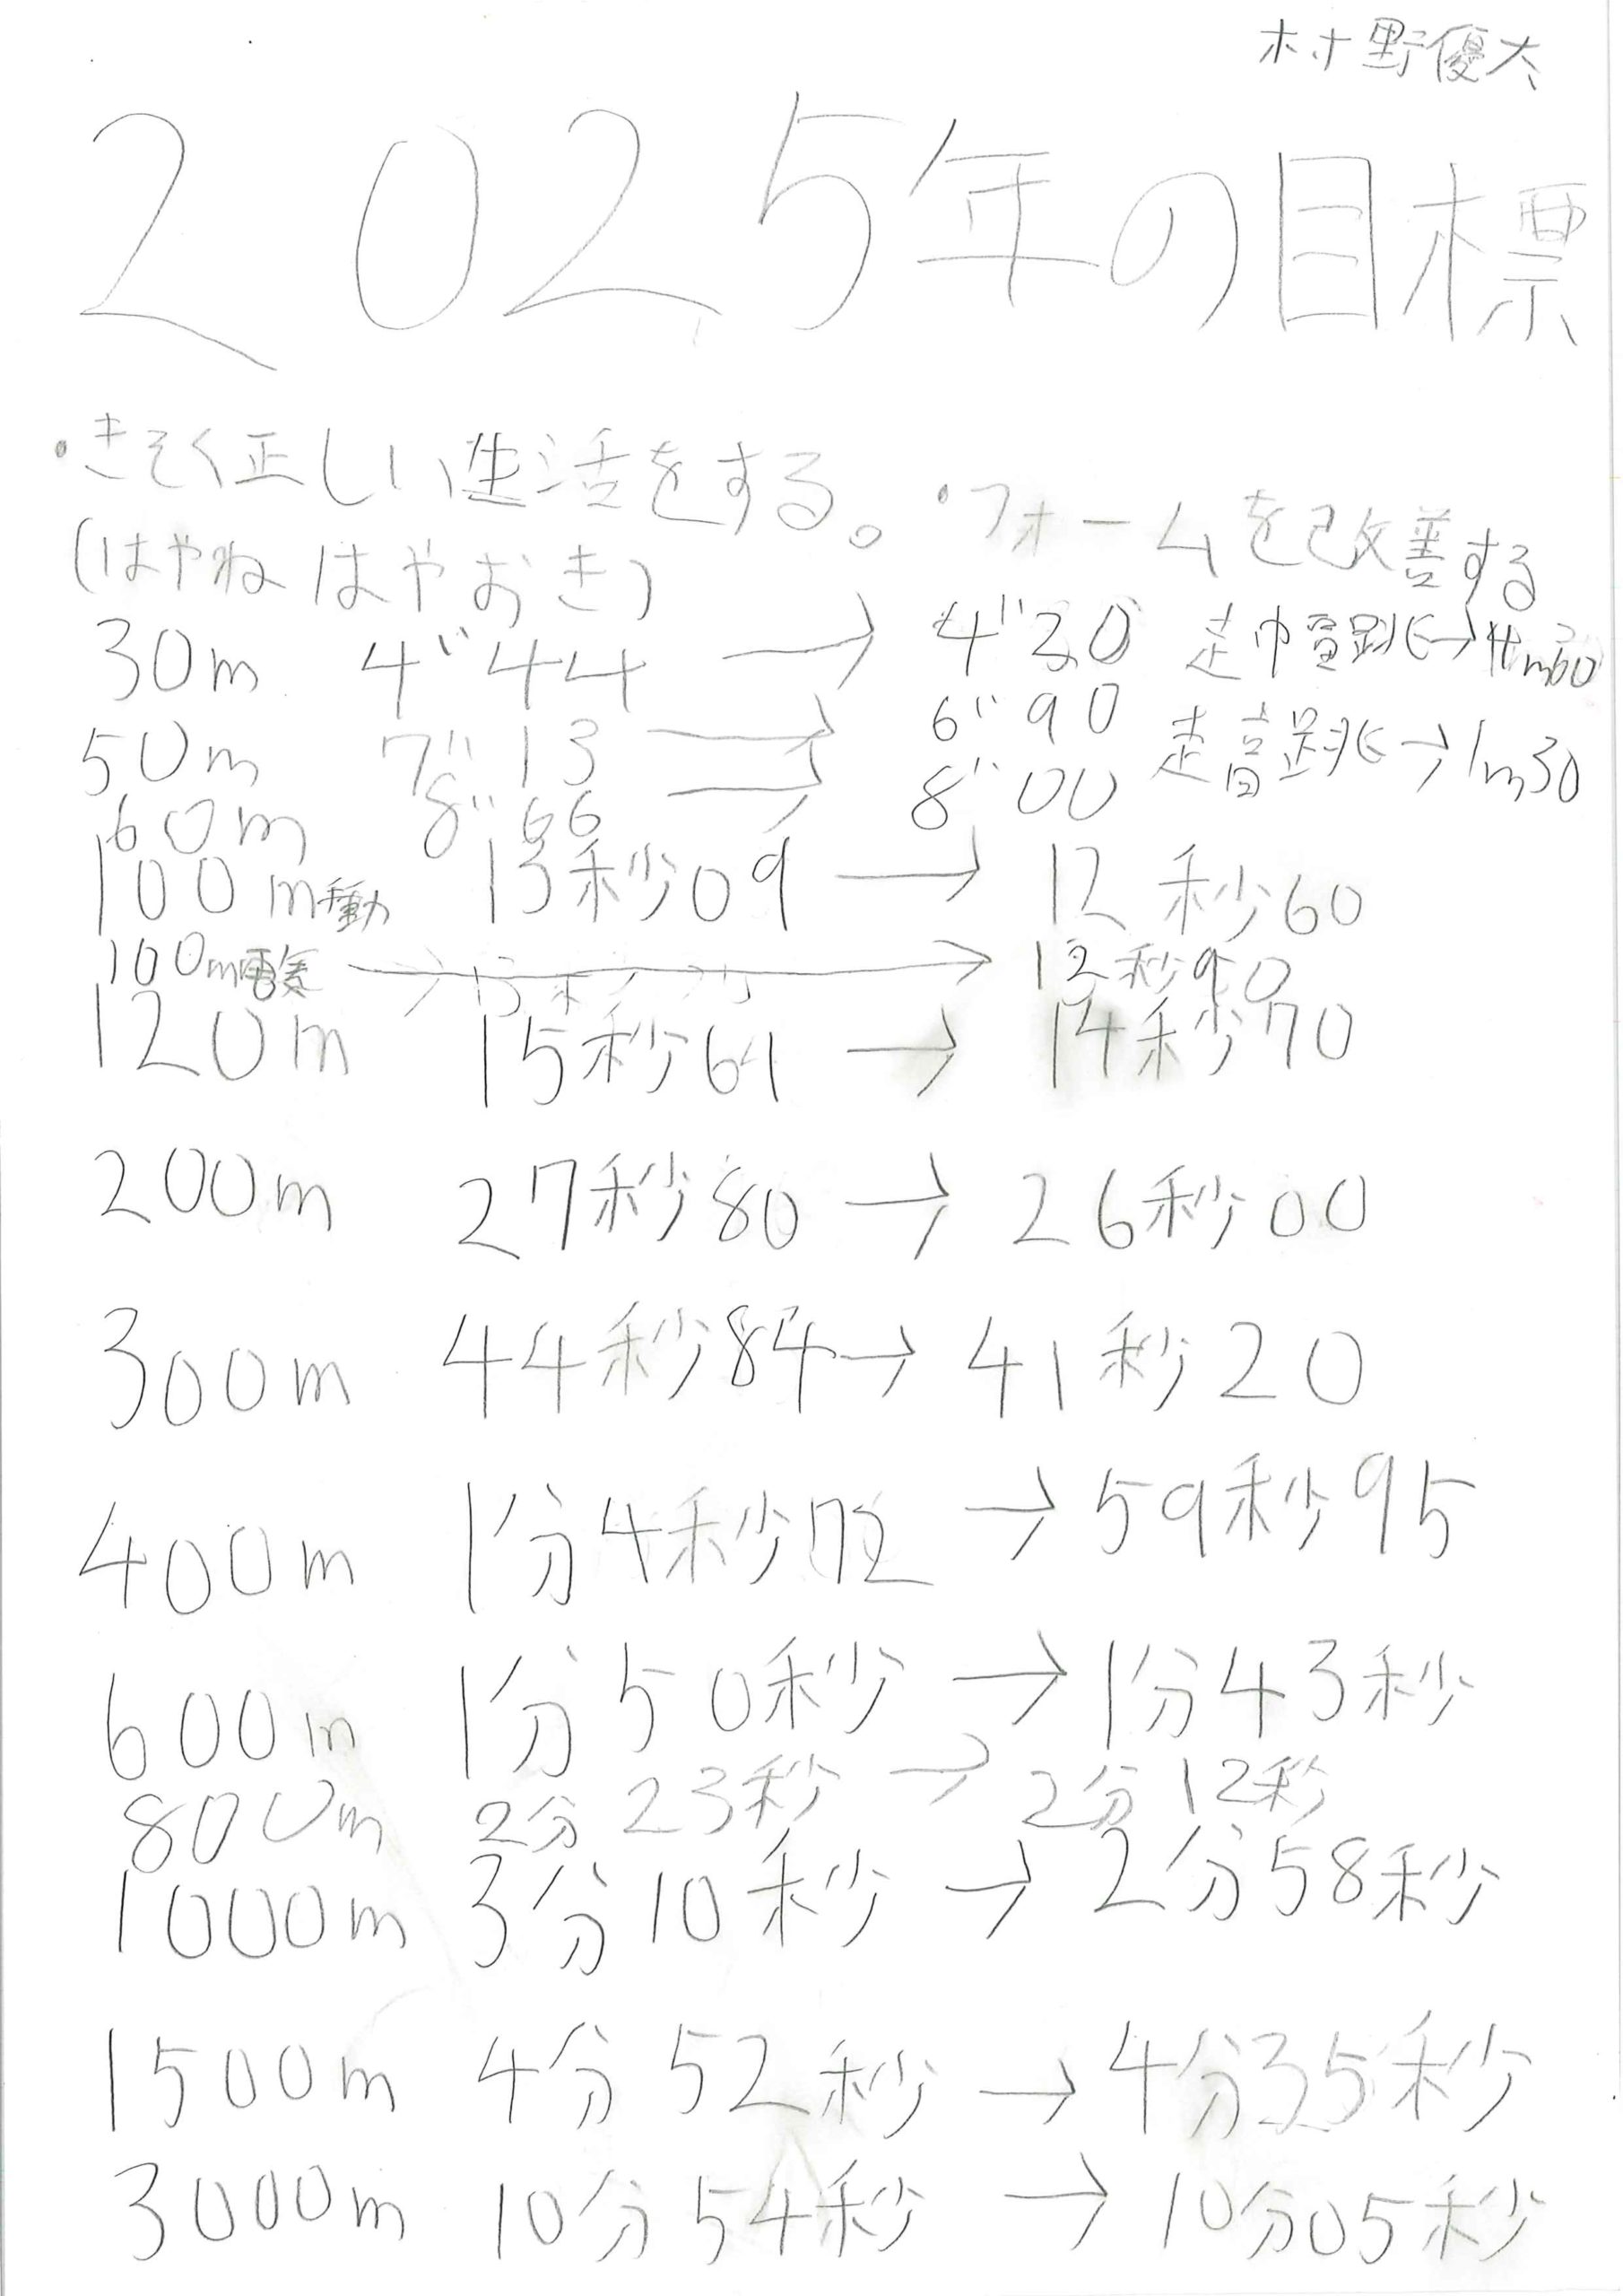 村野優太
2025年の目標
・きそく正しい生活をする。
(はやね はやおき)
・フォームを改善する
30m 4"44 → 4"20 走巾畐跳→4m30
50m 7"13 → 6"90 走高跳→1m30
60m 8"66 → 8"00
100m手動 13秒09 → 12秒60
100m電気 → 12秒90
120m 15秒61 → 14秒70
200m 27秒80 → 26秒00
300m 44秒84→ 41秒20
400m 1分4秒72 → 59秒95
600m 1分50秒 → 1分43秒
800m 2分23秒 → 2分12秒
1000m 3分10秒 → 2分58秒
1500m 4分52秒 → 4分35秒
3000m 10分54秒 → 10分05秒